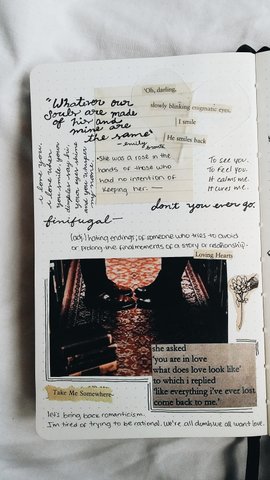 'Oh, darling,
slowly blinking enigmatic eyes,
I smile
He smiles back
"Whatever our
souls are made
of his and
mine are
the same"
- emily
bronte
i love you.
i love when
you smile, your
dimples say hi,
your eyes shine
and you whisper
my name.
She was a rose in the
hands of those who
had no intention of
keeping her. —
To see you.
To feel you.
It calms me.
It cures me.
don't you ever go.
finifugal—
(adj.) hating endings; of someone who tries to avoid
or prolong the final moments of a story or relationship.
Loving Hearts
she asked
'you are in love
what does love look like'
to which i replied
'like everything i've ever lost
come back to me.'
Take Me Somewhere
let's bring back romanticism.
I'm tired of trying to be rational. we're all dumb, we all want love.